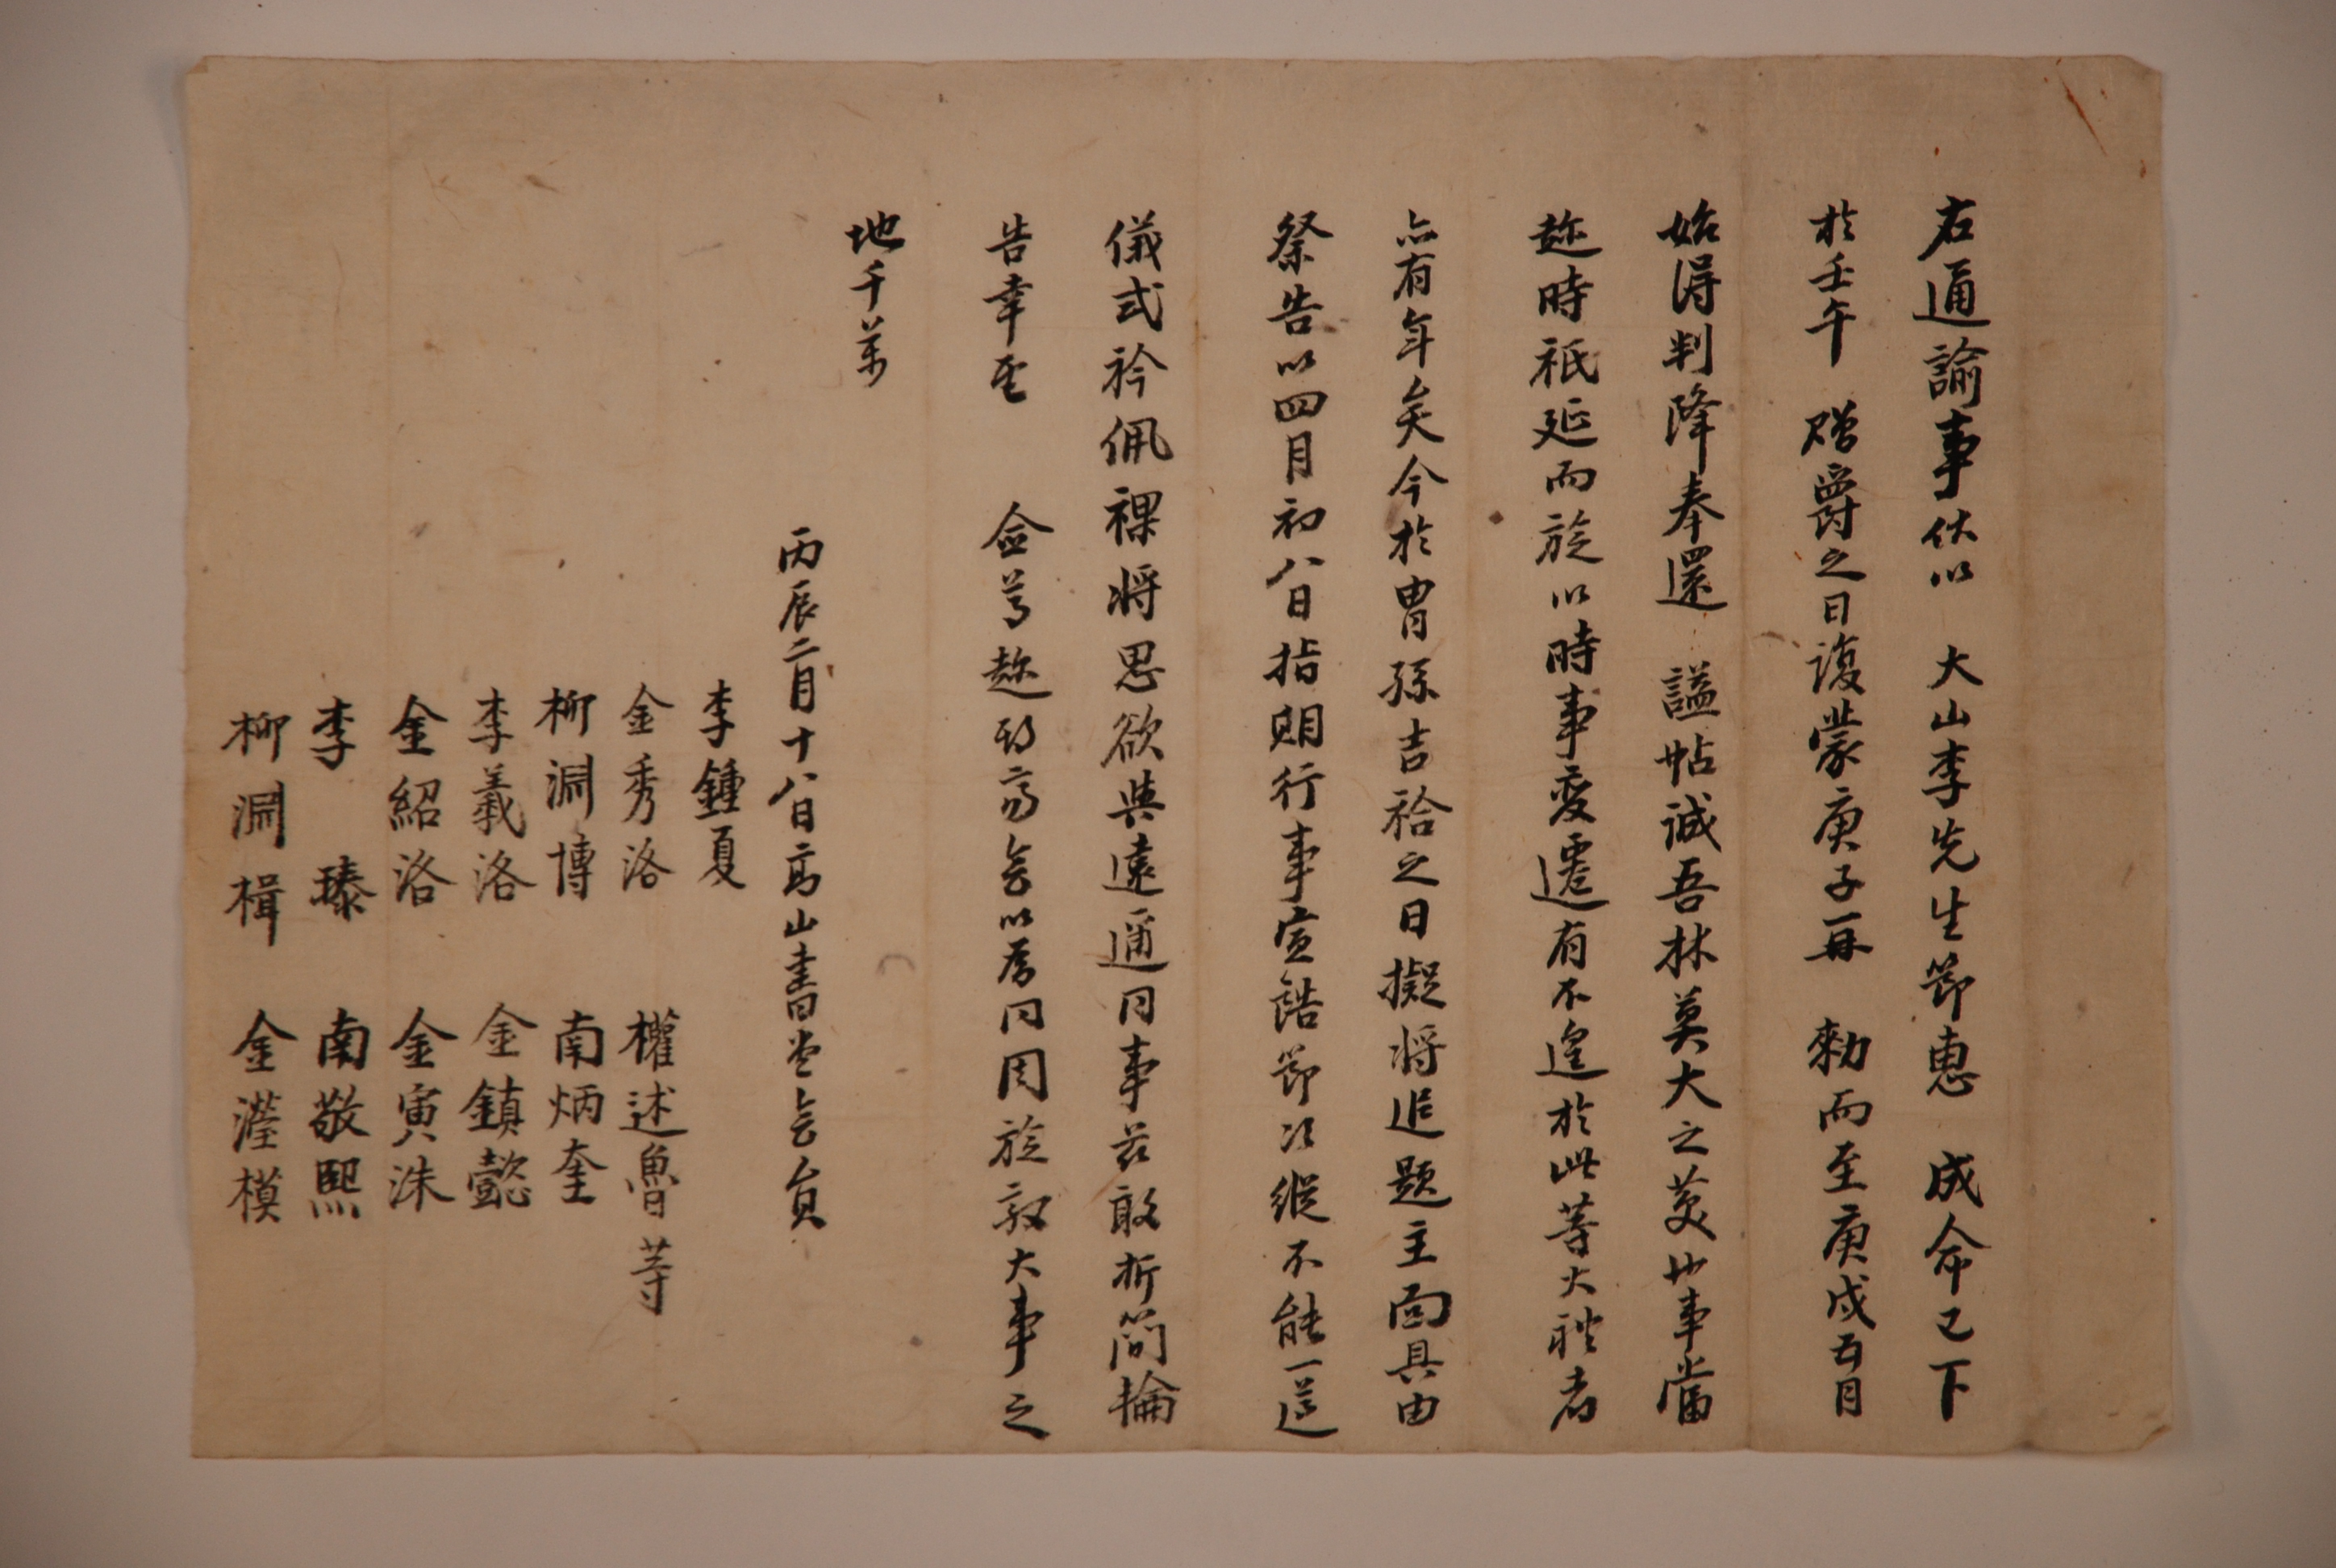 右通諭事伏以 大山李先生節惠 成命已下
於壬午 贈爵之日復蒙庚子再 勅而至庚戌五月
始得判降奉還 諡帖誠吾林莫大之美也事當
趂時祇延而旋以時事變遷有不遑於此等大禮者
亦有年矣今於胄孫吉祫之日擬將追題主面具由
祭告以四月初八日指期行事宣誥節次縱不能一遵
儀式衿佩祼將思欲與遠邇同事玆敢折簡輪
告幸至 僉尊趂期齊會以爲同周旋敦大事之
地千萬
丙辰二月十八日高山書堂會員
李鍾夏
金秀洛 權述魯等
柳淵博 南炳奎
李羲洛 金鎮懿
金紹洛 金寅洙
李 瑧 南敬熙
柳淵楫 金瀅模